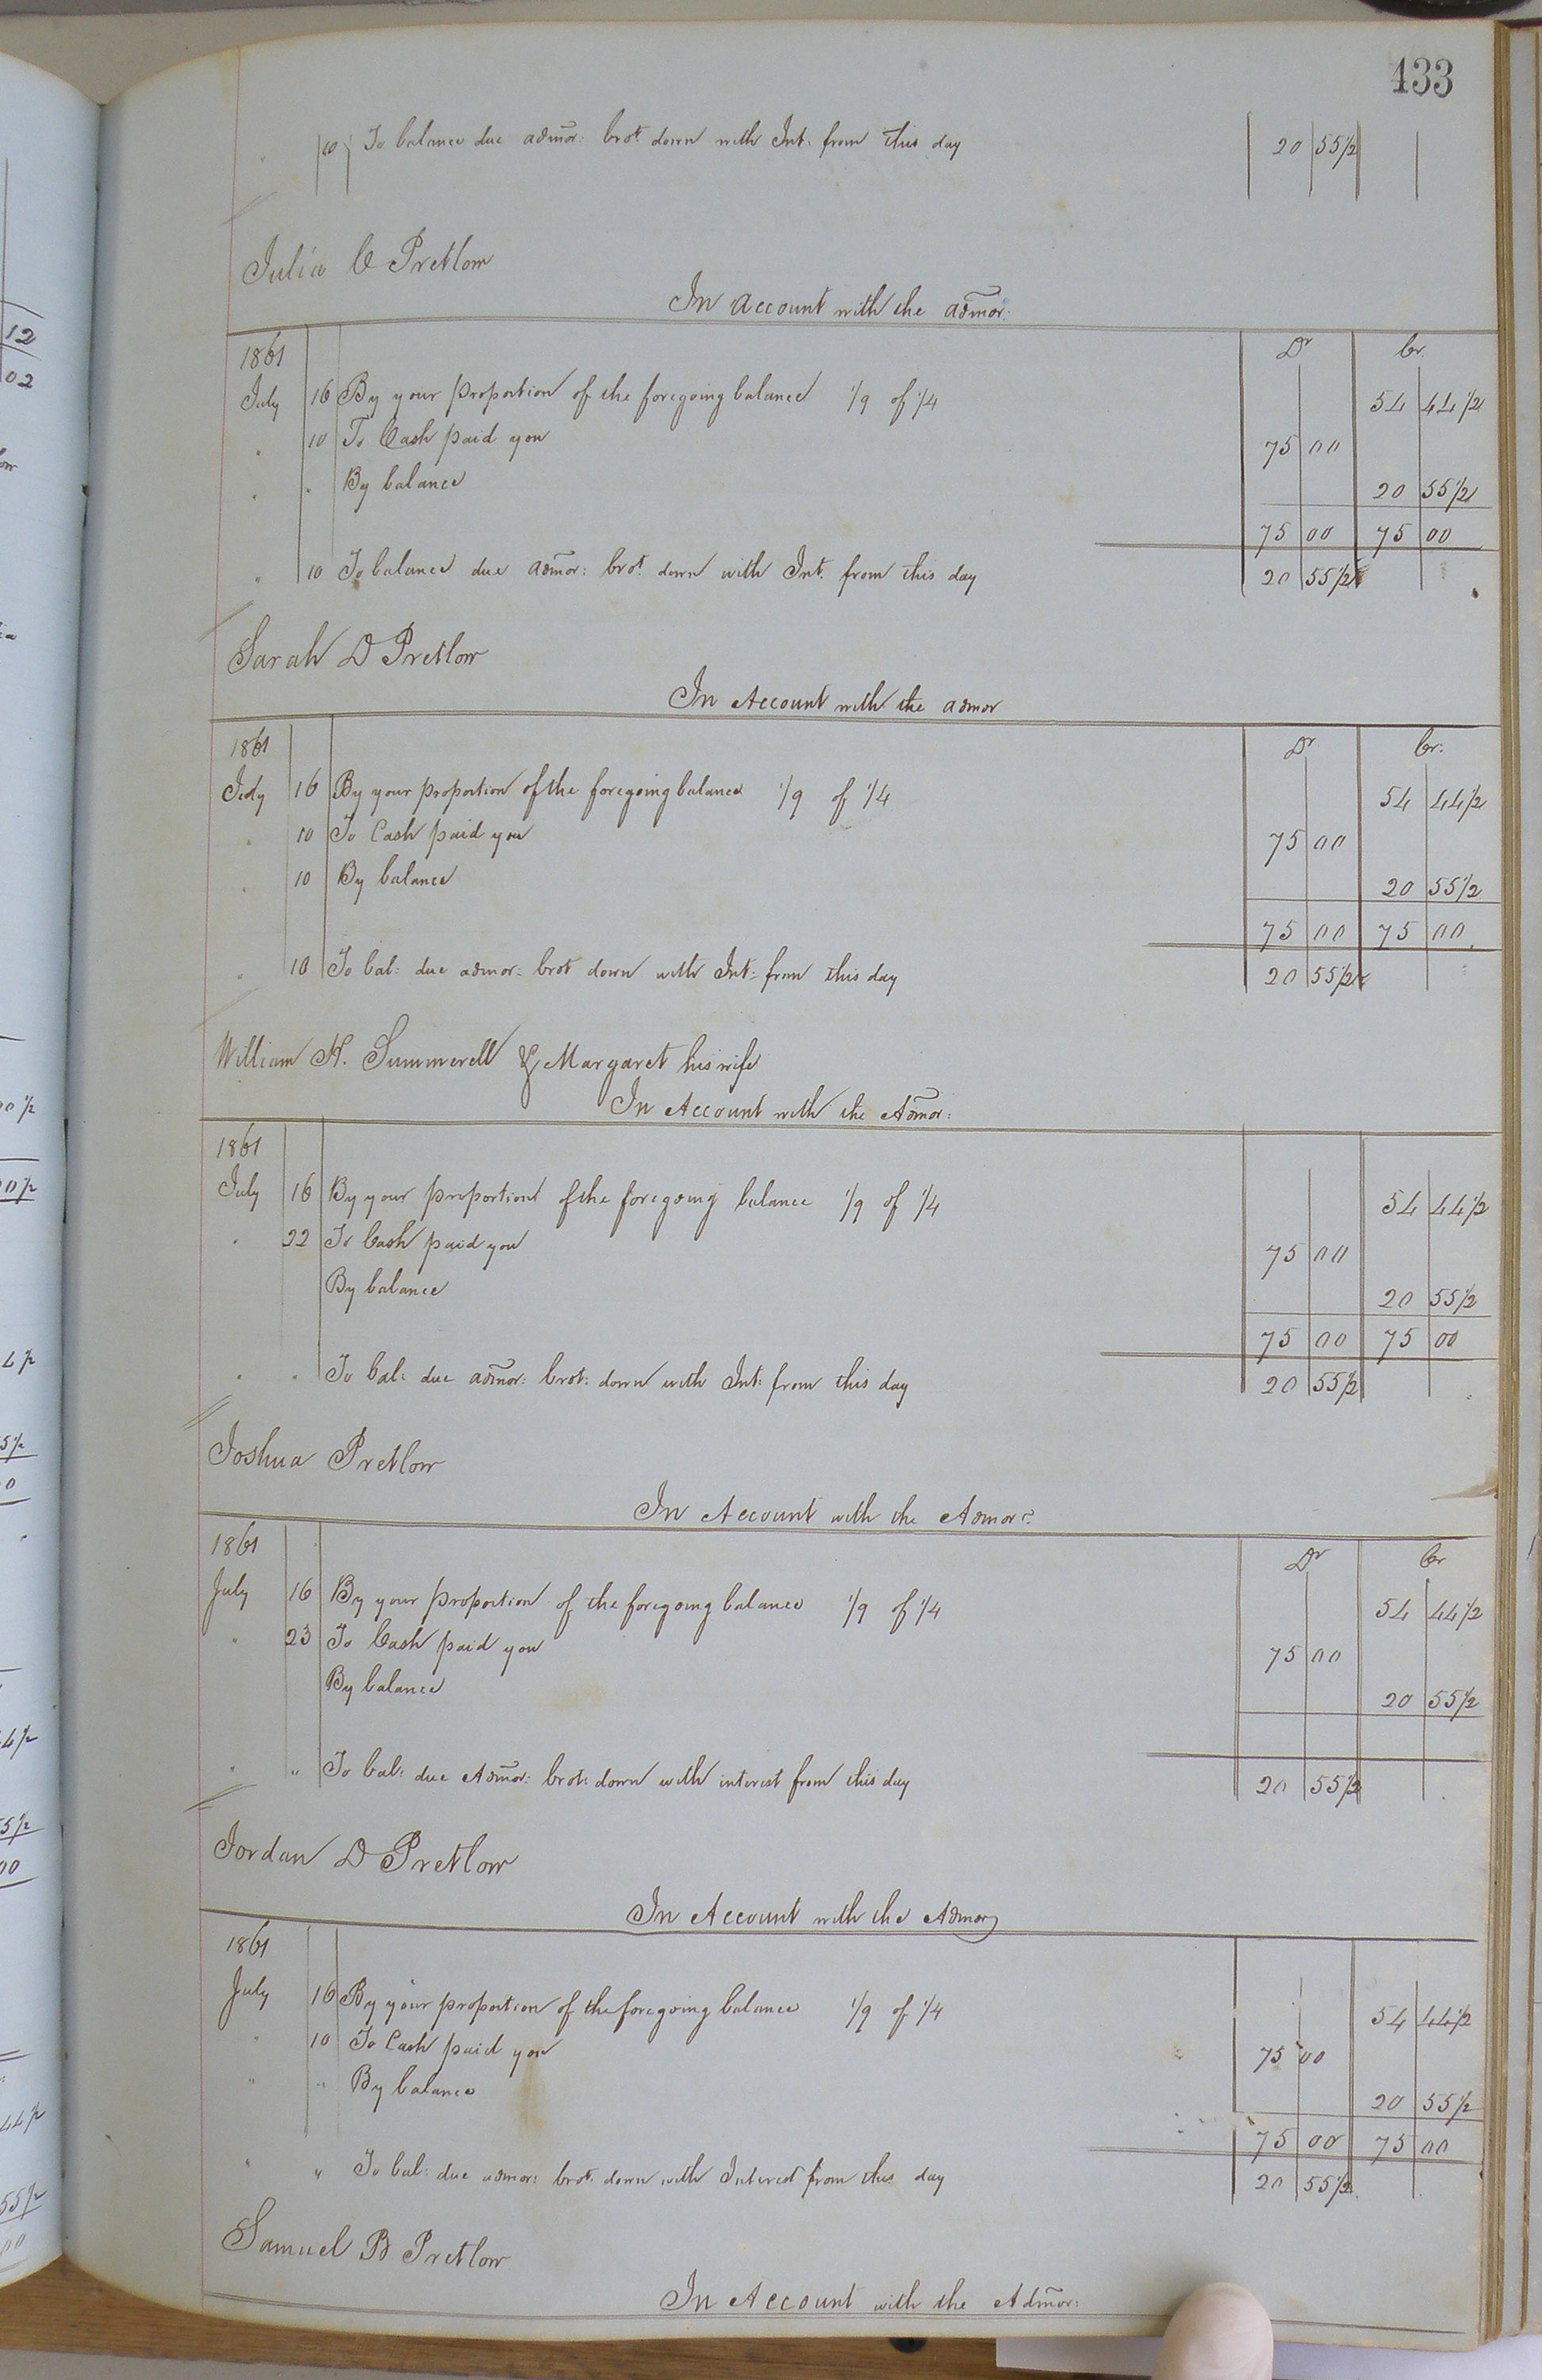 433
10 To balance due admor: brot. down with Int: from this day 20 55½
Julia C Pretlow
In account with the admor:
1861 Dr Cr.
July 16 By your proportion of the foregoing balance 1/9 of 1/4 54 44½
" 10 To Cash paid you 75 00
" " By balance 20 55½
75 00 75 00
" 10 To balance due admor: brot. down with Int. from this day 20 55½
Sarah D Pretlow
In Account with the admor
1861 Dr Cr:
July 16 By your proportion of the foregoing balance 1/9 of 1/4 54 44½
" 10 To Cash paid you 75 00
" 10 By balance 20 55½
75 00 75 00
" 10 To bal: due admor: brot down with Int: from this day 20 55½
William H. Summerell & Margaret his wife
In Account with the Admor:
1861
July 16 By your proportion of the foregoing balance 1/9 of 1/4 54 44½
" 22 To Cash paid you 75 00
By balance 20 55½
75 00 75 00
" " To bal: due admor: brot: down with Int: from this day 20 55½
Joshua Pretlow
In Account with the Admor:
1861 Dr Cr
July 16 By your proportion of the foregoing balance 1/9 of 1/4 54 44½
" 23 To Cash paid you 75 00
By balance 20 55½
" " To bal: due Admor: brot: down with interest from this day 20 55½
Jordan D Pretlow
In Account with the Admor
1861
July 16 By your proportion of the foregoing balance 1/9 of 1/4 54 44½
" 10 To Cash paid you 75 00
" " By balance 20 55½
75 00 75 00
" " To bal: due admor: brot. down with Interest from this day 20 55½
Samuel B Pretlow
In Account with the Admor: